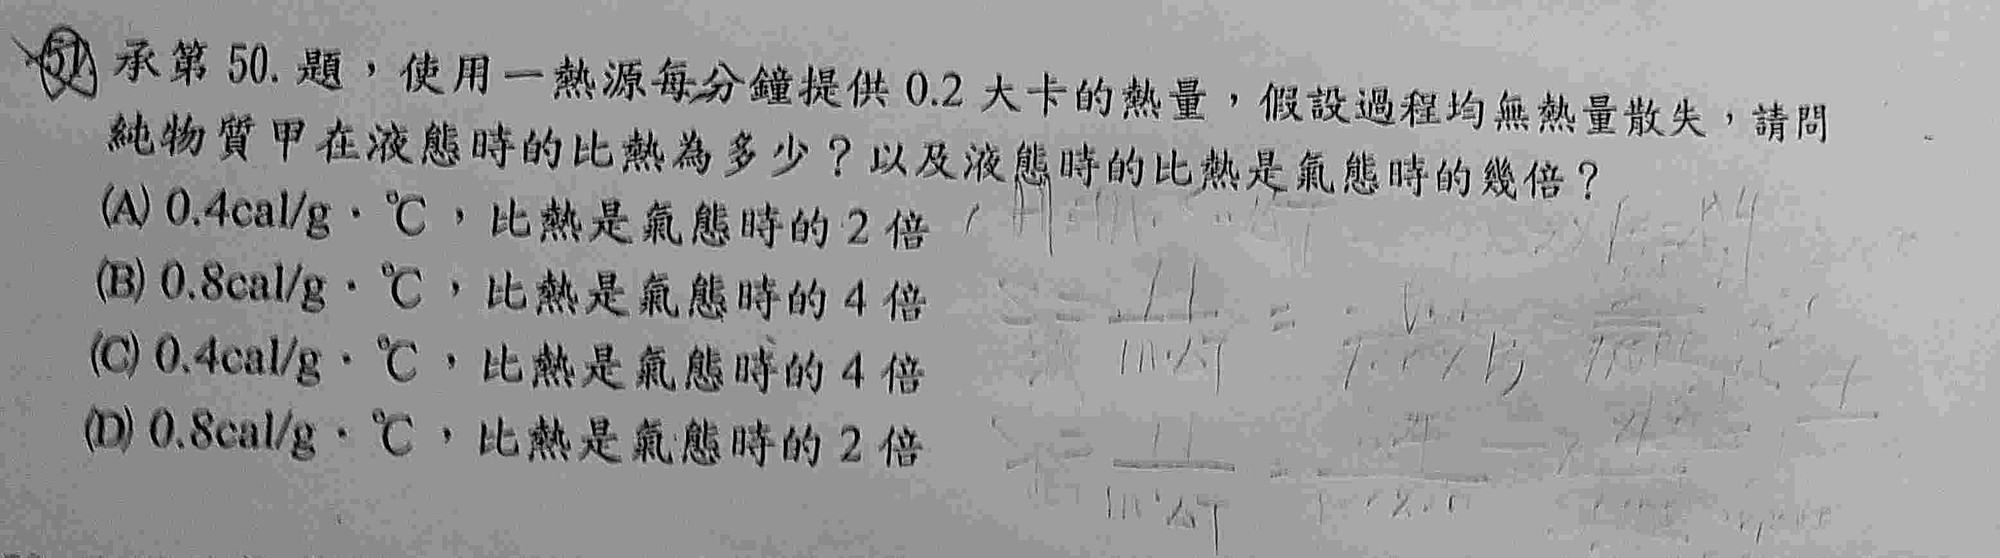 51. 承第 50. 題，使用一熱源每分鐘提供 0.2 大卡的熱量，假設過程均無熱量散失，請問
純物質甲在液態時的比熱為多少？以及液態時的比熱是氣態時的幾倍？
(A) 0.4cal/g·℃，比熱是氣態時的 2 倍
(B) 0.8cal/g·℃，比熱是氣態時的 4 倍
(C) 0.4cal/g·℃，比熱是氣態時的 4 倍
(D) 0.8cal/g·℃，比熱是氣態時的 2 倍